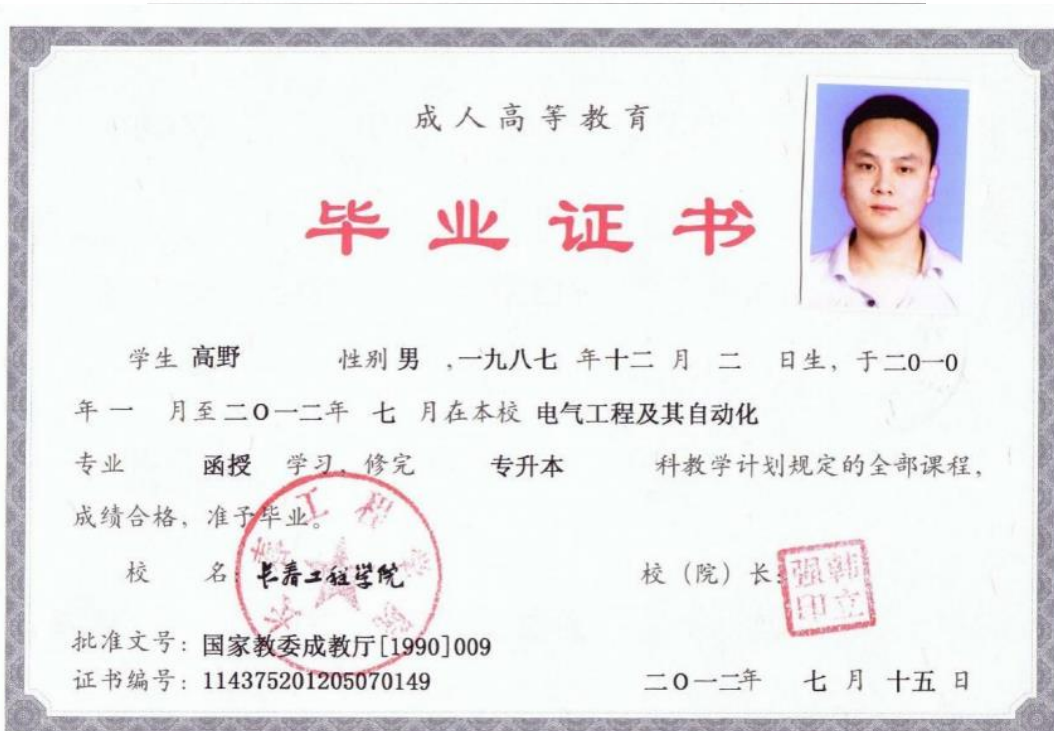 成人高等教育
毕业证书
学生 高野 性别 男 ,一九八七 年十二 月 二 日生, 于二0一0
年 一 月至二O一二年 七 月在本校 电气工程及其自动化
专业 函授 学习, 修完 专升本 科教学计划规定的全部课程,
成绩合格, 准予毕业。
校 名: 长春工程学院
校 (院) 长:
韩立强印
长春工程学院
批准文号: 国家教委成教厅[1990]009
证书编号: 114375201205070149
二O一二年 七 月 十五 日